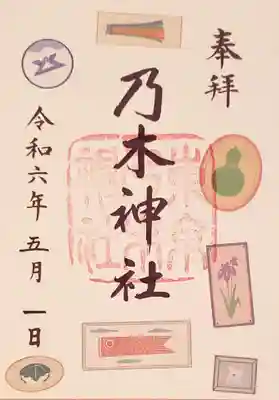 奉拝
乃木神社
令和六年五月一日